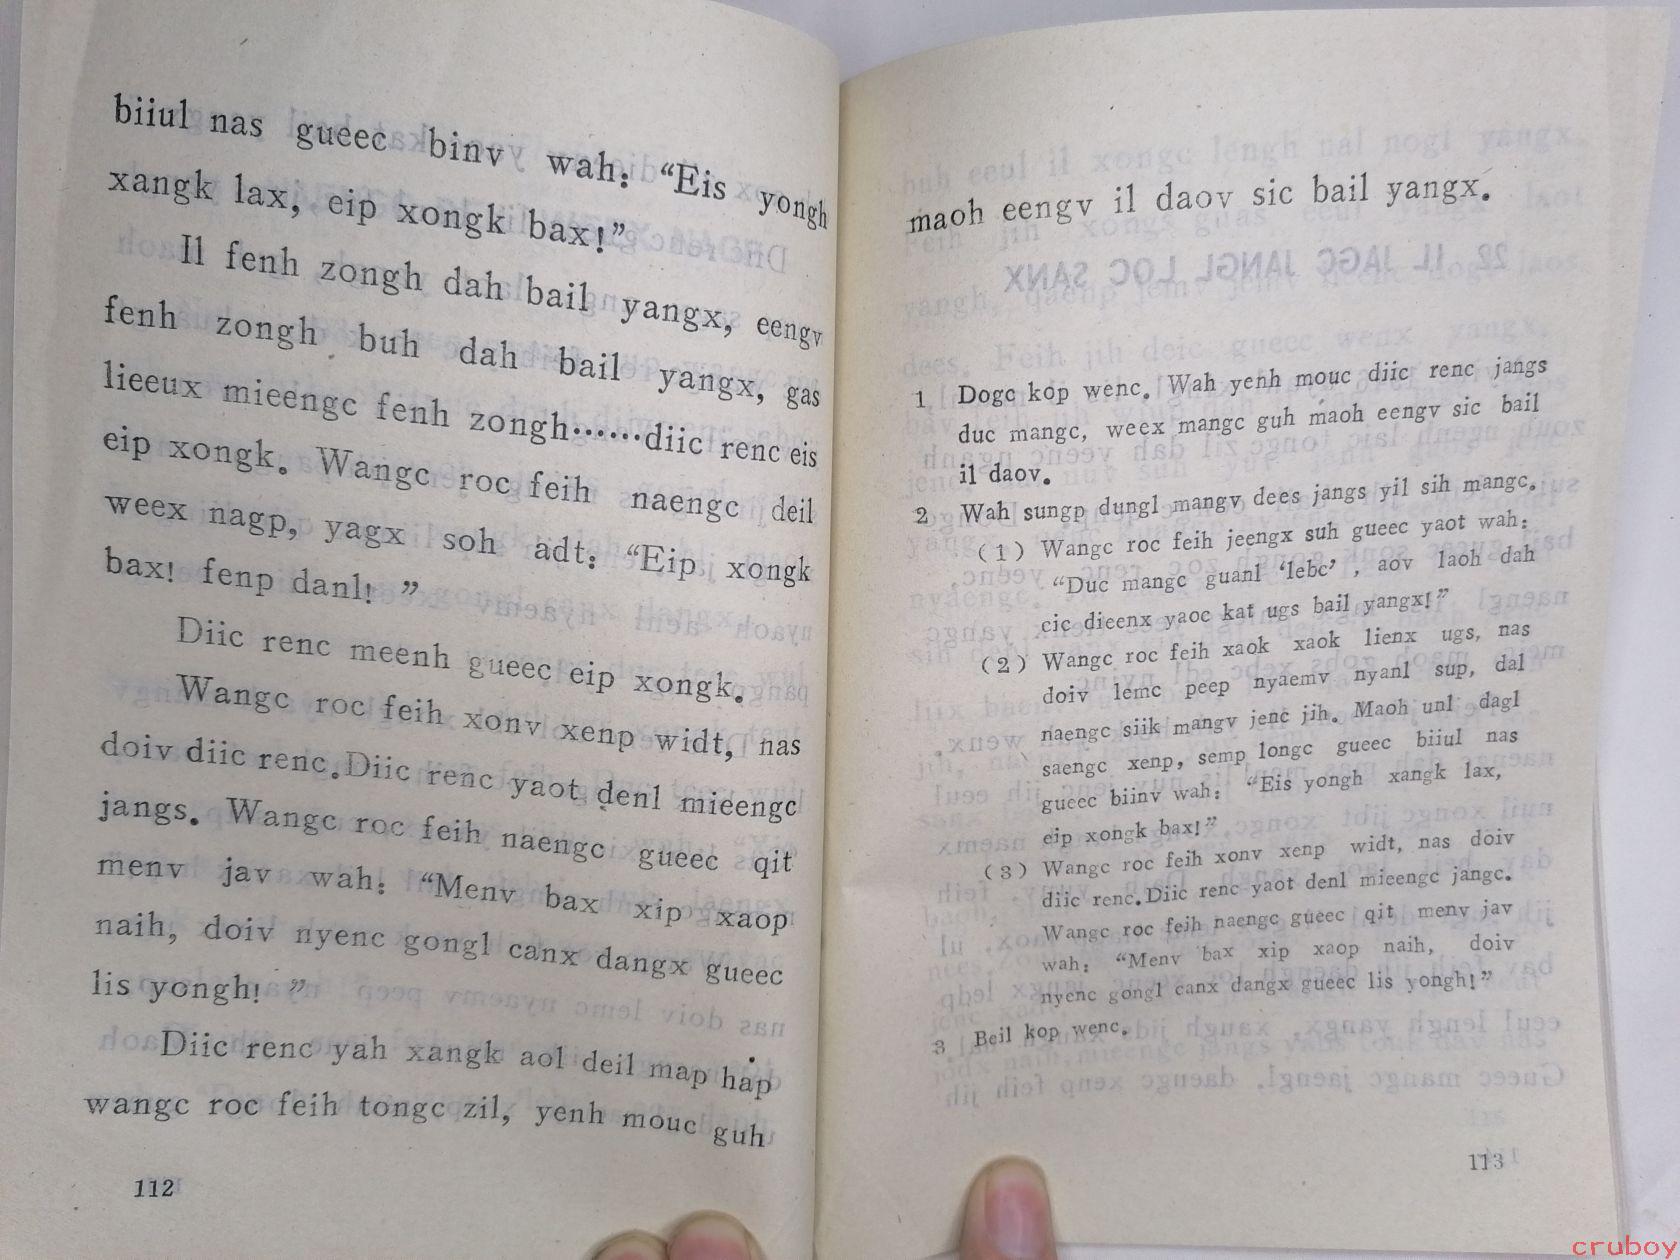 biiul nas gueec binv wah: “Eis yongh
xangk lax, eip xongk bax!”
Il fenh zongh dah bail yangx, eengv
fenh zongh buh dah bail yangx, gas
lieeux mieengc fenh zongh……diic renc eis
eip xongk. Wangc roc feih naengc deil
weex nagp, yagx soh adt: “Eip xongk
bax! fenp danl! ”
Diic renc meenh gueec eip xongk.
Wangc roc feih xonv xenp widt, nas
doiv diic renc. Diic renc yaot denl mieengc
jangs. Wangc roc feih naengc gueec qit
menv jav wah: “Menv bax xip xaop
naih, doiv nyenc gongl canx dangx gueec
lis yongh! ”
Diic renc yah xangk aol deil map hap
wangc roc feih tongc zil, yenh mouc guh
112
maoh eengv il daov sic bail yangx.
1 Dogc kop wenc. Wah yenh mouc diic renc jangs
duc mangc, weex mangc guh maoh eengv sic bail
il daov.
2 Wah sungp dungl mangv dees jangs yil sih mangc.
(1) Wangc roc feih jeengx suh gueec yaot wah:
“Duc mangc guanl ‘lebc’, aov laoh dah
cic dieenx yaoc kat ugs bail yangx!”
(2) Wangc roc feih xaok xaok lienx ugs, nas
doiv lemc peep nyaemv nyanl sup, dal
naengc siik mangv jenc jih. Maoh unl dagl
saengc xenp, semp longc gueec biiul nas
gueec biinv wah: “Eis yongh xangk lax,
eip xongk bax!”
(3) Wangc roc feih xonv xenp widt, nas doiv
diic renc. Diic renc yaot denl mieengc jangc.
Wangc roc feih naengc gueec qit menv jav
wah: “Menv bax xip xaop naih, doiv
nyenc gongl canx dangx gueec lis yongh!”
3 Beil kop wenc.
113
cruboy